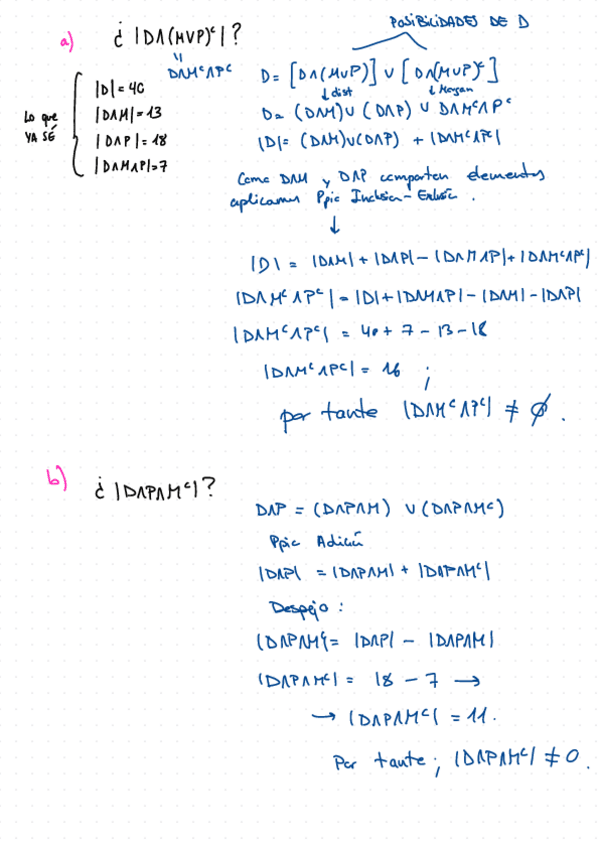 POSIBILIDADES DE D
a) ¿ |D∧(M∨P)ᶜ| ?
"
D∧Mᶜ∧Pᶜ
Lo que YA SÉ
|D| = 40
|D∧M| = 13
|D∧P| = 18
|D∧M∧P| = 7
D = [D∧(M∨P)] ∪ [D∧(M∨P)ᶜ]
↓ dist ↓ Morgan
D = (D∧M) ∪ (D∧P) ∪ D∧Mᶜ∧Pᶜ
|D| = (D∧M)∪(D∧P) + |D∧Mᶜ∧Pᶜ|
Como D∧M y D∧P comparten elementos
aplicamos Ppio Inclusión-Exclusión.
↓
|D| = |D∧M| + |D∧P| - |D∧M∧P| + |D∧Mᶜ∧Pᶜ|
|D∧Mᶜ∧Pᶜ| = |D| + |D∧M∧P| - |D∧M| - |D∧P|
|D∧Mᶜ∧Pᶜ| = 40 + 7 - 13 - 18
|D∧Mᶜ∧Pᶜ| = 16 ;
por tanto |D∧Mᶜ∧Pᶜ| ≠ ∅.
b) ¿ |D∧P∧Mᶜ| ?
D∧P = (D∧P∧M) ∪ (D∧P∧Mᶜ)
Ppio Adición
|D∧P| = |D∧P∧M| + |D∧P∧Mᶜ|
Despejo :
|D∧P∧Mᶜ| = |D∧P| - |D∧P∧M|
|D∧P∧Mᶜ| = 18 - 7 →
→ |D∧P∧Mᶜ| = 11.
Por tanto ; |D∧P∧Mᶜ| ≠ 0.